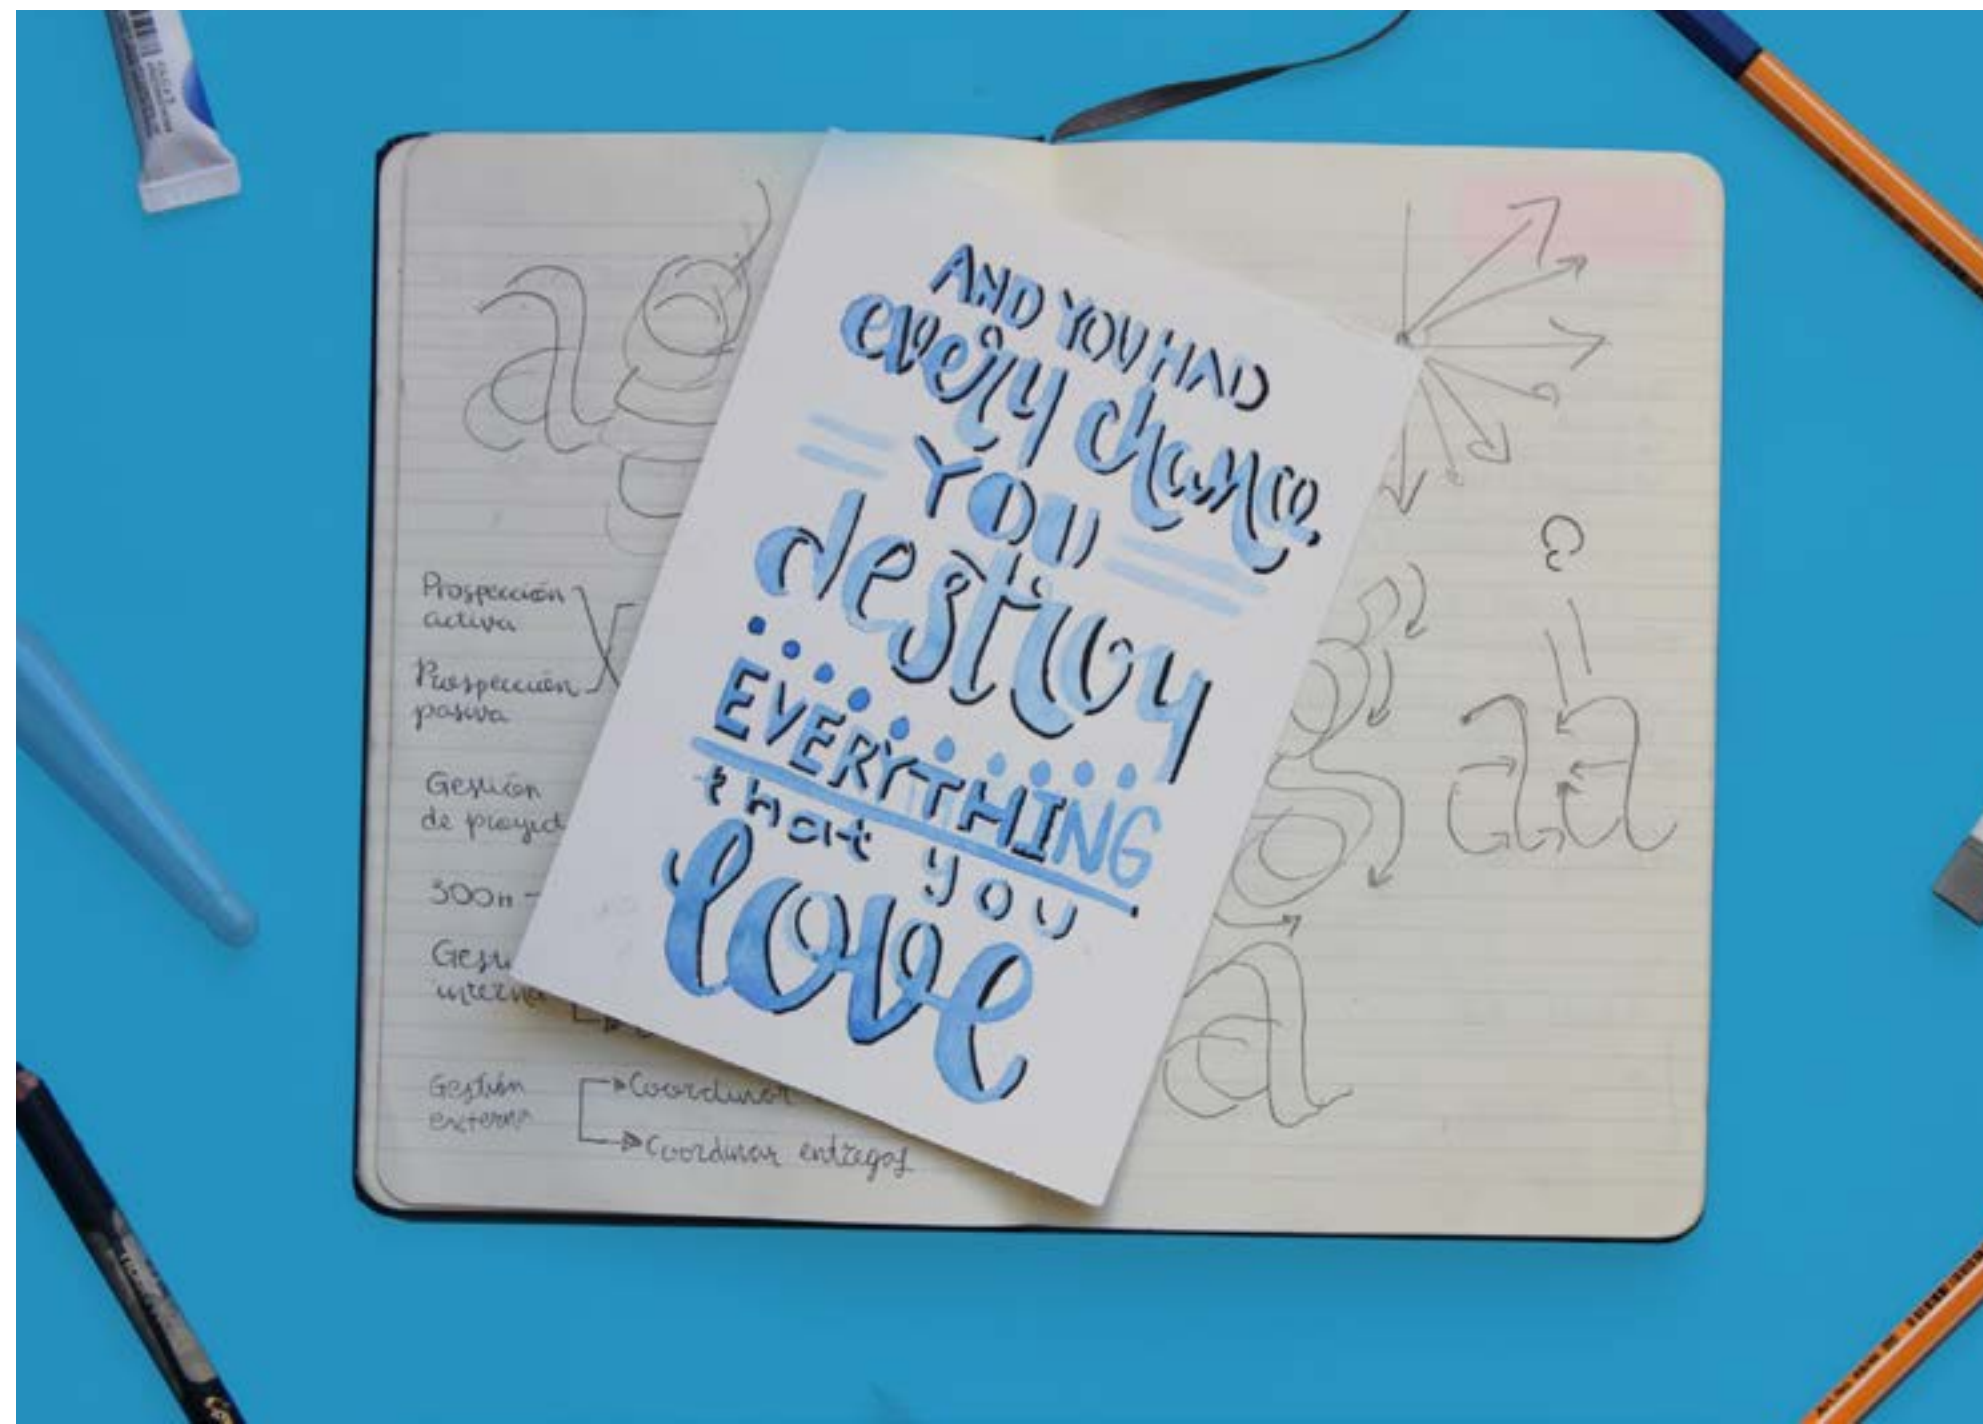 AND YOU HAD
every chance
YOU
destroy
EVERYTHING
that you
love
ag
Prospección
activa
Prospección
pasiva
Gestión
de proyect
300h
Gest
interna
Gestión
externa
Coordinar
Coordinar entregas
g
aa
a